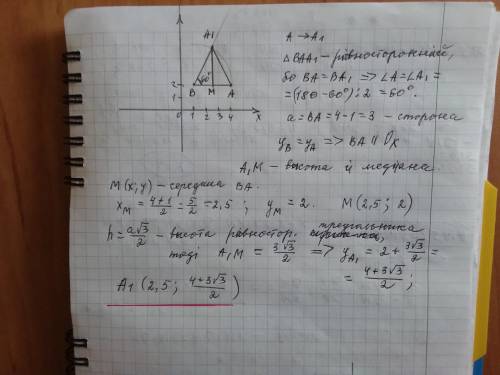 A1
60°
2
1
B M A
1 2 3 4 x
A → A1
△BAA1 – рівносторонній,
бо BA = BA1 => ∠A = ∠A1 =
= (180 – 60°) : 2 = 60°.
a = BA = 4 – 1 = 3 – сторона
yB = yA => BA || Ox
A1M – висота й медіана.
M(x; y) – середина BA.
xM = (4+1)/2 = 5/2 = 2,5 ; yM = 2. M(2,5; 2)
h = a√3/2 – висота рівностор. трикутника,
тоді A1M = 3√3/2 => yA1 = 2 + 3√3/2 =
= (4+3√3)/2 ;
A1 (2,5; (4+3√3)/2)